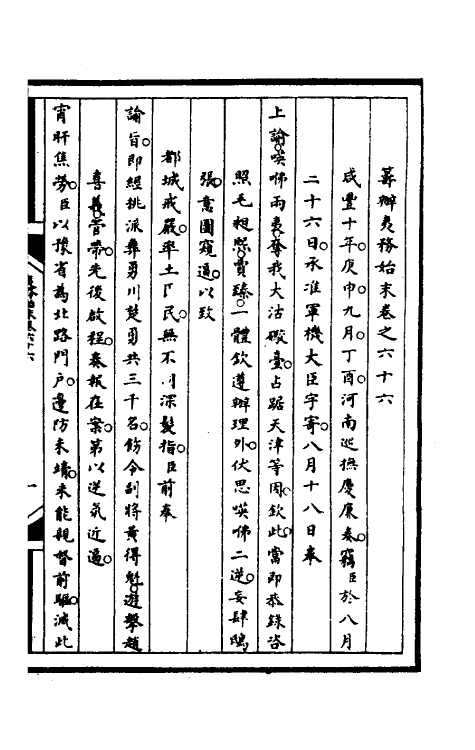 籌辦夷務始末卷之六十六
咸豐十年庚申九月丁酉河南巡撫慶廉奏竊臣於八月
二十六日承准軍機大臣字寄八月十八日奉
上諭㗆咈兩夷奪我大沽礮臺占踞天津等因欽此當即恭錄咨
照毛昶熙賈臻一體欽遵辦理外伏思㗆咈二逆妄肆鴟
張意圖窺逼以致
都城戒嚴率土民無不深髮指臣前奉
諭旨即經挑派彝勇川楚勇共三千名飭令副將黃得魁遊擊趙
喜義管帶先後啟程奏報在案第以逆氛近逼
宵旰焦勞臣以豫省為北路門戶邊防未靖未能親督前驅滅此